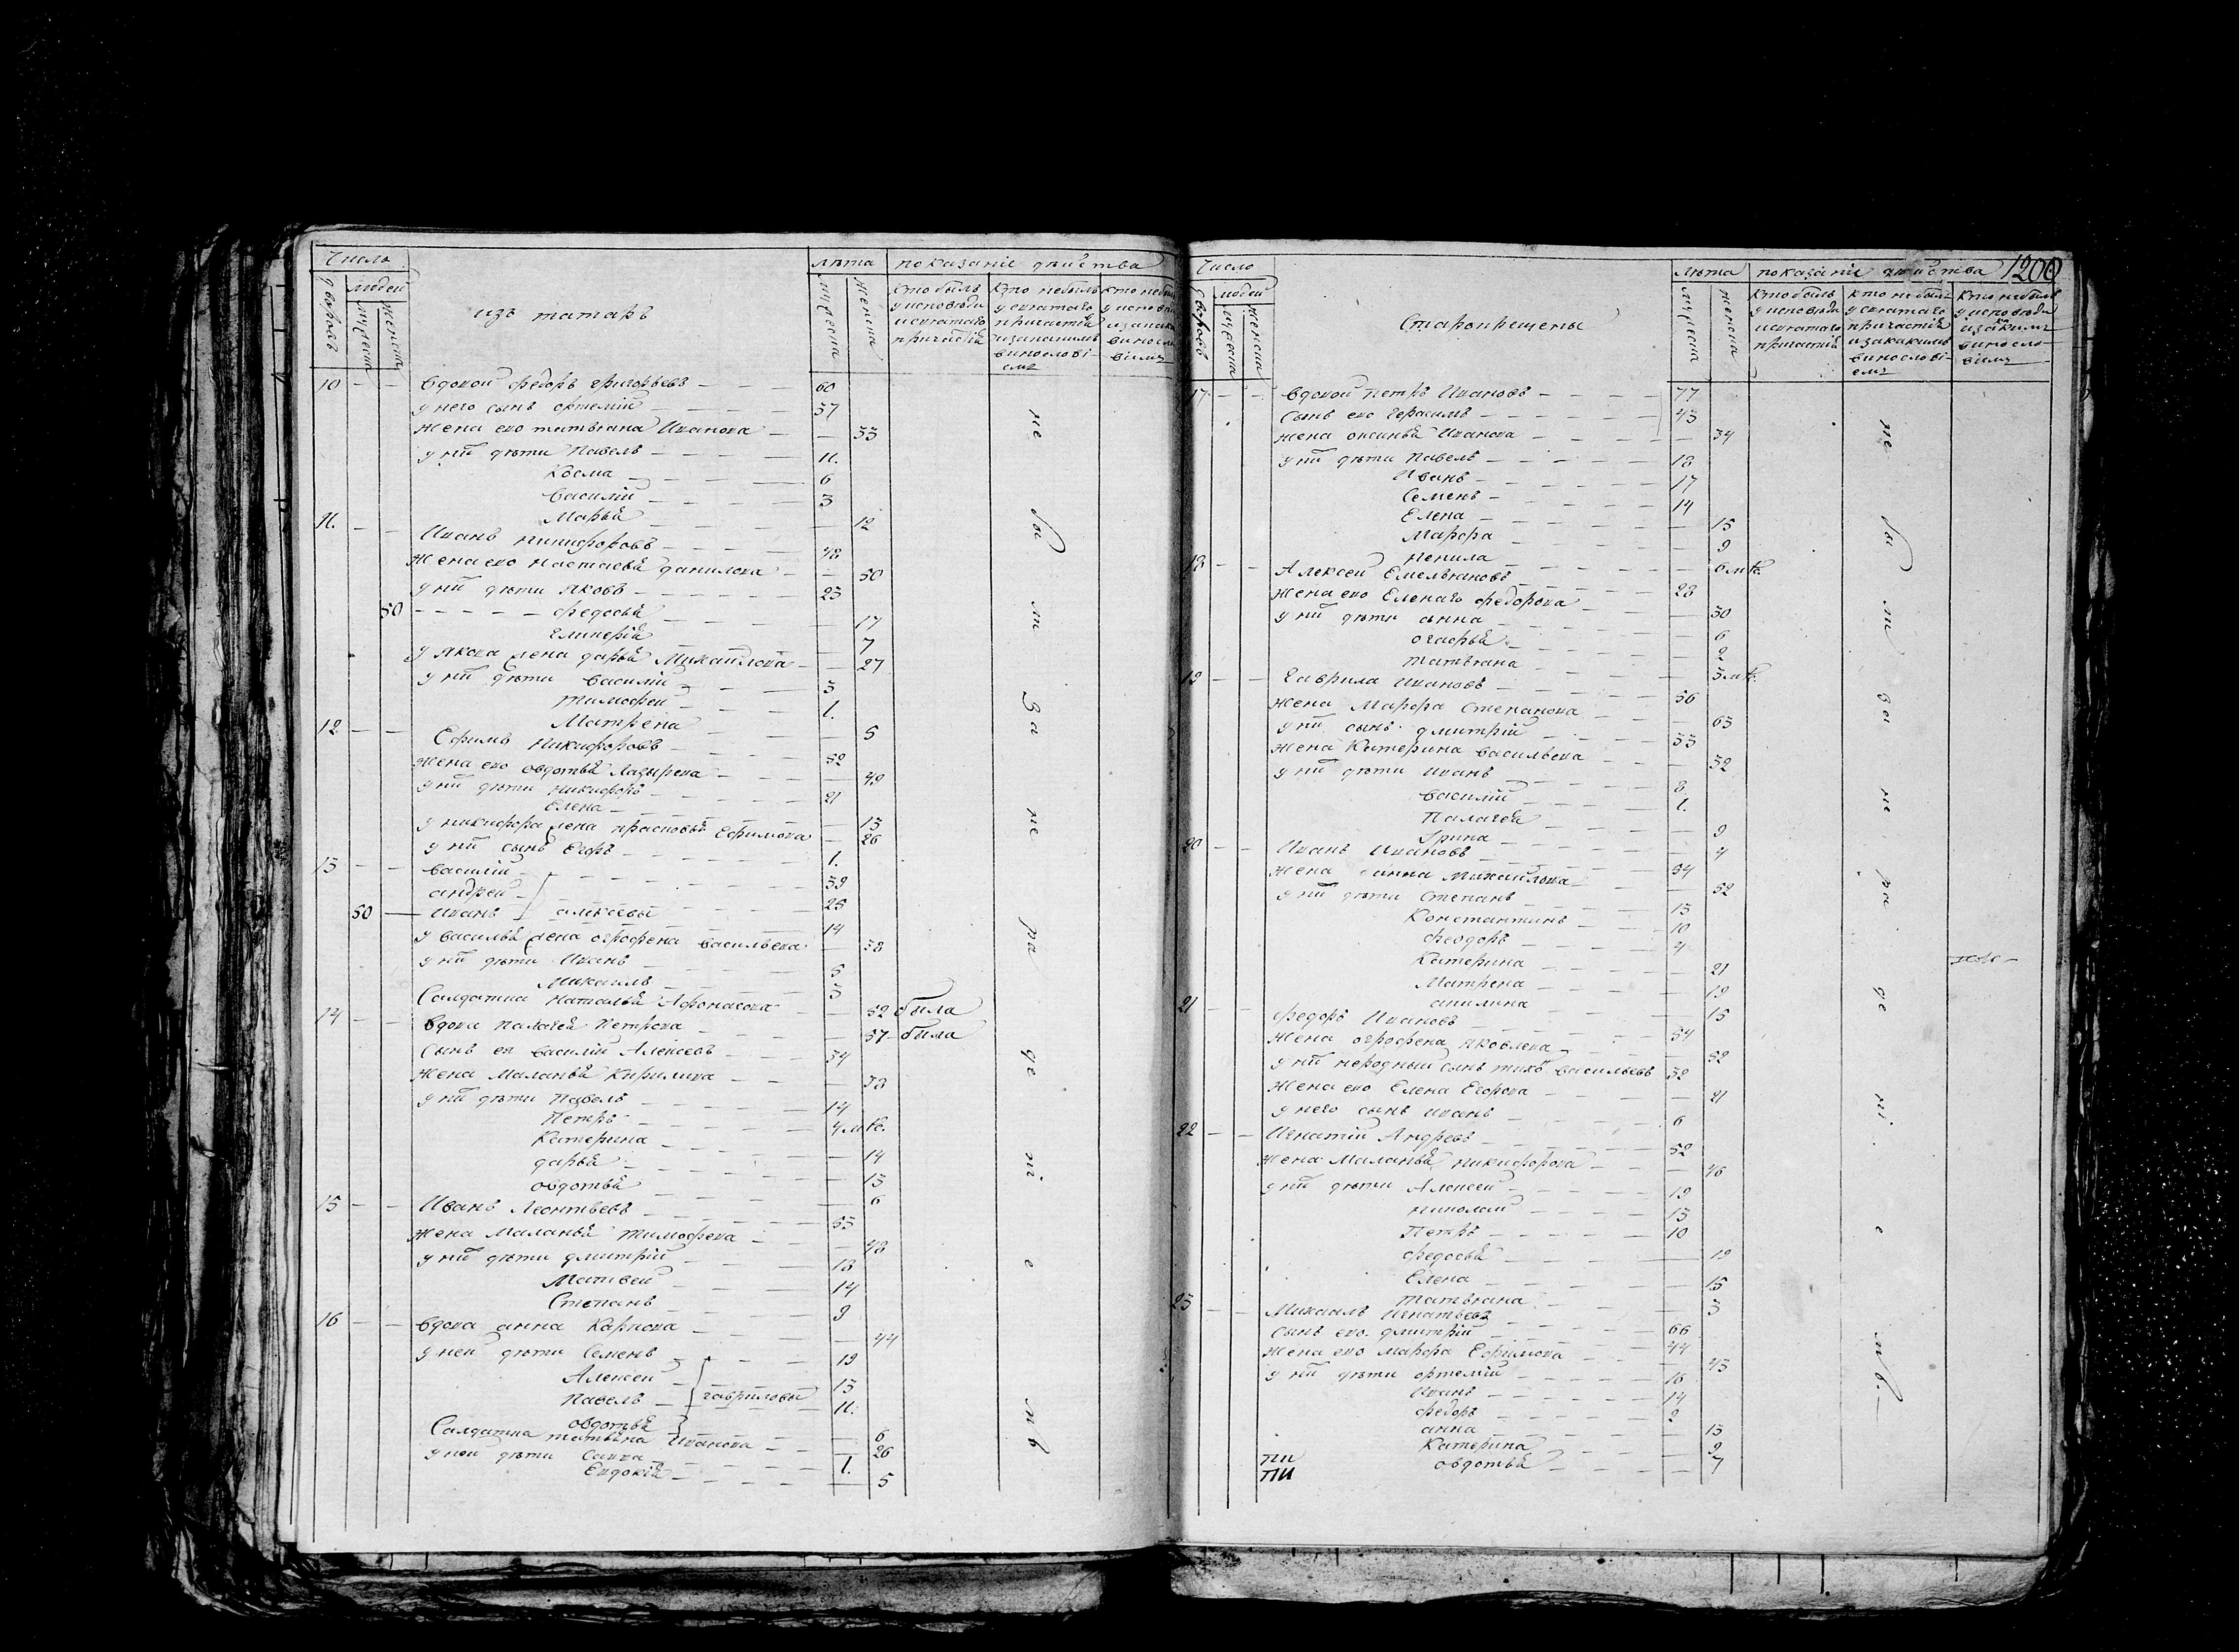 Число
людей
дворовъ
мужеска
женска
изъ татаръ
лѣта
мужеска
женска
показаніе дѣйства
кто былъ у исповѣди и святаго причастїѧ
кто небылъ у святаго причастїѧ изакакимъ винословіемъ
10 вдовой Федоръ Григорьевъ 60
у него сынъ Ортемій 37
жена ево татьяна Иванова 33
у нихъ дѣти Павелъ 11.
Косма 6
Василій 3
Марья 12
11. Иванъ Никифоровъ 48
жена ево Настасья данилова 50
у нихъ дѣти Яковъ 23
50 Федосья 17
7
у Якова жена дарья Михайлова 27
у нихъ дѣти Василій 3
Тимофей 1.
Матрена 5
12 Ефимъ Никифоровъ 52
жена ево овдотья Лазырева 49
у нихъ дѣти Никифоръ 21
Елена 13
у никифора жена прасковья Ефимова 26
у нихъ сынъ Егоръ 1.
13 Василій 39
андрей 25
50 Иванъ алексеевы 14
у василья жена огрофена васильева 38
у нихъ дѣти Иванъ 5
Михаилъ 3
Салдатка наталья Афонасова 52 была
14 вдова Палагея Петрова 57 была
Сынъ ея Василій Алексеевъ 34
жена Маланья Кирилова 38
у нихъ дѣти Павелъ 14
Петръ 4 м
Катерина 14
дарья 13
овдотья 6
15 Иванъ Леонтьевъ 53
жена Маланья Тимофева 48
у нихъ дѣти дмитрій 18
Матвей 14
Степанъ 9
16 вдова анна Карпова 44
у ней дѣти Семенъ 19
Алексей 13
Павелъ гавриловы 11.
овдотья 6
Салдатка татьяна Иванова 26
у ней дѣти Савва 1.
Евдокія 5
не бы т за не ра де ні е мъ
Число
людей
дворовъ
мужеска
женска
Старокрещены
лѣта
мужеска
женска
показаніе дѣйства 1200
кто былъ у исповѣди и святаго причастїѧ
кто небылъ у святаго причастїѧ изакакимъ винословіемъ
кто небылъ у исповѣди изакимъ винословіемъ
17 вдовой Петръ Ивановъ 77
Сынъ ево Герасимъ 43
жена оксинья Иванова 34
у нихъ дѣти Павелъ 18
Иванъ 17
Семенъ 14
Елена 15
Марфа 9
Ненила 6 м
18 Алексей Емельяновъ 28
жена ево Федорова 30
у нихъ дѣти анна 6
огафья 2
татьяна 3 м
19 Гаврила Ивановъ 56
жена Марфа Степанова 63
у нихъ сынъ дмитрій 33
жена Катерина васильева 32
у нихъ дѣти Иванъ 8
Василій 1.
Палагея 9
Ирина 4
20 Иванъ Ивановъ 54
жена анна Михайлова 52
у нихъ дѣти Степанъ 13
Константинъ 10
Феодоръ 4
Катерина 21
Матрена 19
акилина 15
21 Федоръ Ивановъ 54
жена огрофена яковлева 52
у нихъ неродный сынъ васильевъ 32
жена ево Елена Егорова 21
у него сынъ Иванъ 6
22 Игнатій Андреевъ 52
жена Маланья никифорова 46
у нихъ дѣти Алексей 19
николай 13
Петръ 10
федосья 19
Елена 15
татьяна 3
23 Михаилъ Игнатьевъ 66
сынъ ево дмитрій 44
жена ево Марфа Ефимова 43
у нихъ дѣти ортемій 16
Иванъ 14
Федоръ 2
анна 13
Катерина 9
ПИ овдотья 7
ПИ
не бы т за не ра де ні е мъ